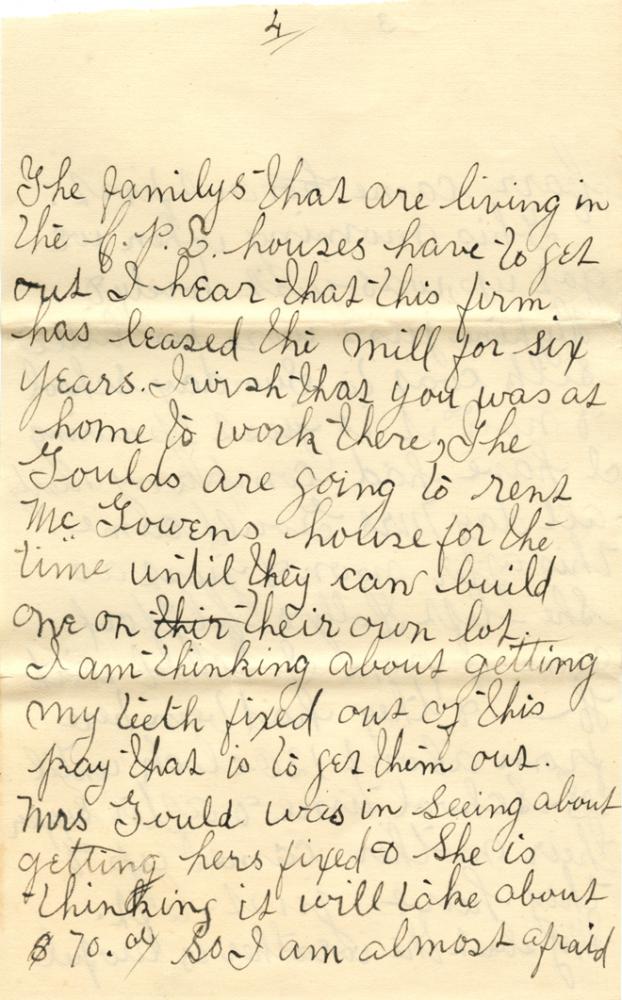 4
The familys that are living in
the C.P.E. houses have to get
out I hear that this firm
has leased the mill for six
years. I wish that you was at
home to work there, The
Goulds are going to rent
Mc Gowens house for the
time until they can build
one on thir their own lot.
I am thinking about getting
my teeth fixed out of this
pay that is to get them out.
Mrs Gould was in seeing about
getting hers fixed & She is
thinking it will take about
$70.00 So I am almost afraid